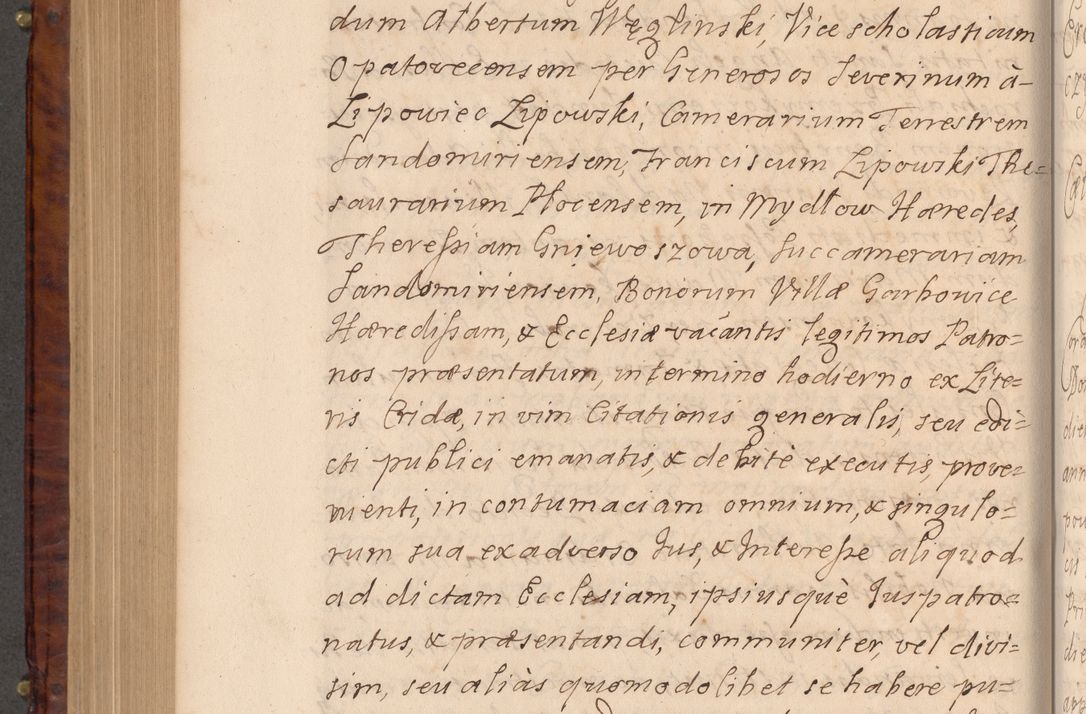 dum Albertum Węglinski, Vice scholasticum
Opatovecensem per Generosos Severinum à
Lipowiec Lipowski, Camerarium Terrestrem
Sandomiriensem, Franciscum Lipowski The=
saurarium Plocensem, in Mydłow Hæredes,
Theressiam Gniewoszowa, Succamerariam
Sandomiriensem, Bonorum Villæ Garbowice
Hæredissam, & Ecclesiæ vacantis legitimos Patro=
nos præsentatum, in termino hodierno ex Lite=
ris Cridæ, in vim Citationis generalis, seu edi=
cti publici emanatis, & debitè executis, prove=
nienti, in contumaciam omnium, & singulo=
rum sua ex adverso Jus, & Interesse aliquod
ad dictam Ecclesiam, ipsiusquè Juspatro=
natus, & præsentandi, communiter, vel divi=
sim, seu aliàs quomodolibet se habere pu=